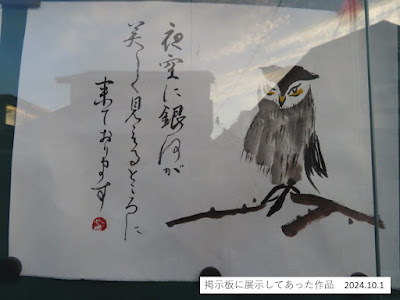 夜空に銀河が
美しく見えるところに
来ております
掲示板に展示してあった作品　2024.10.1